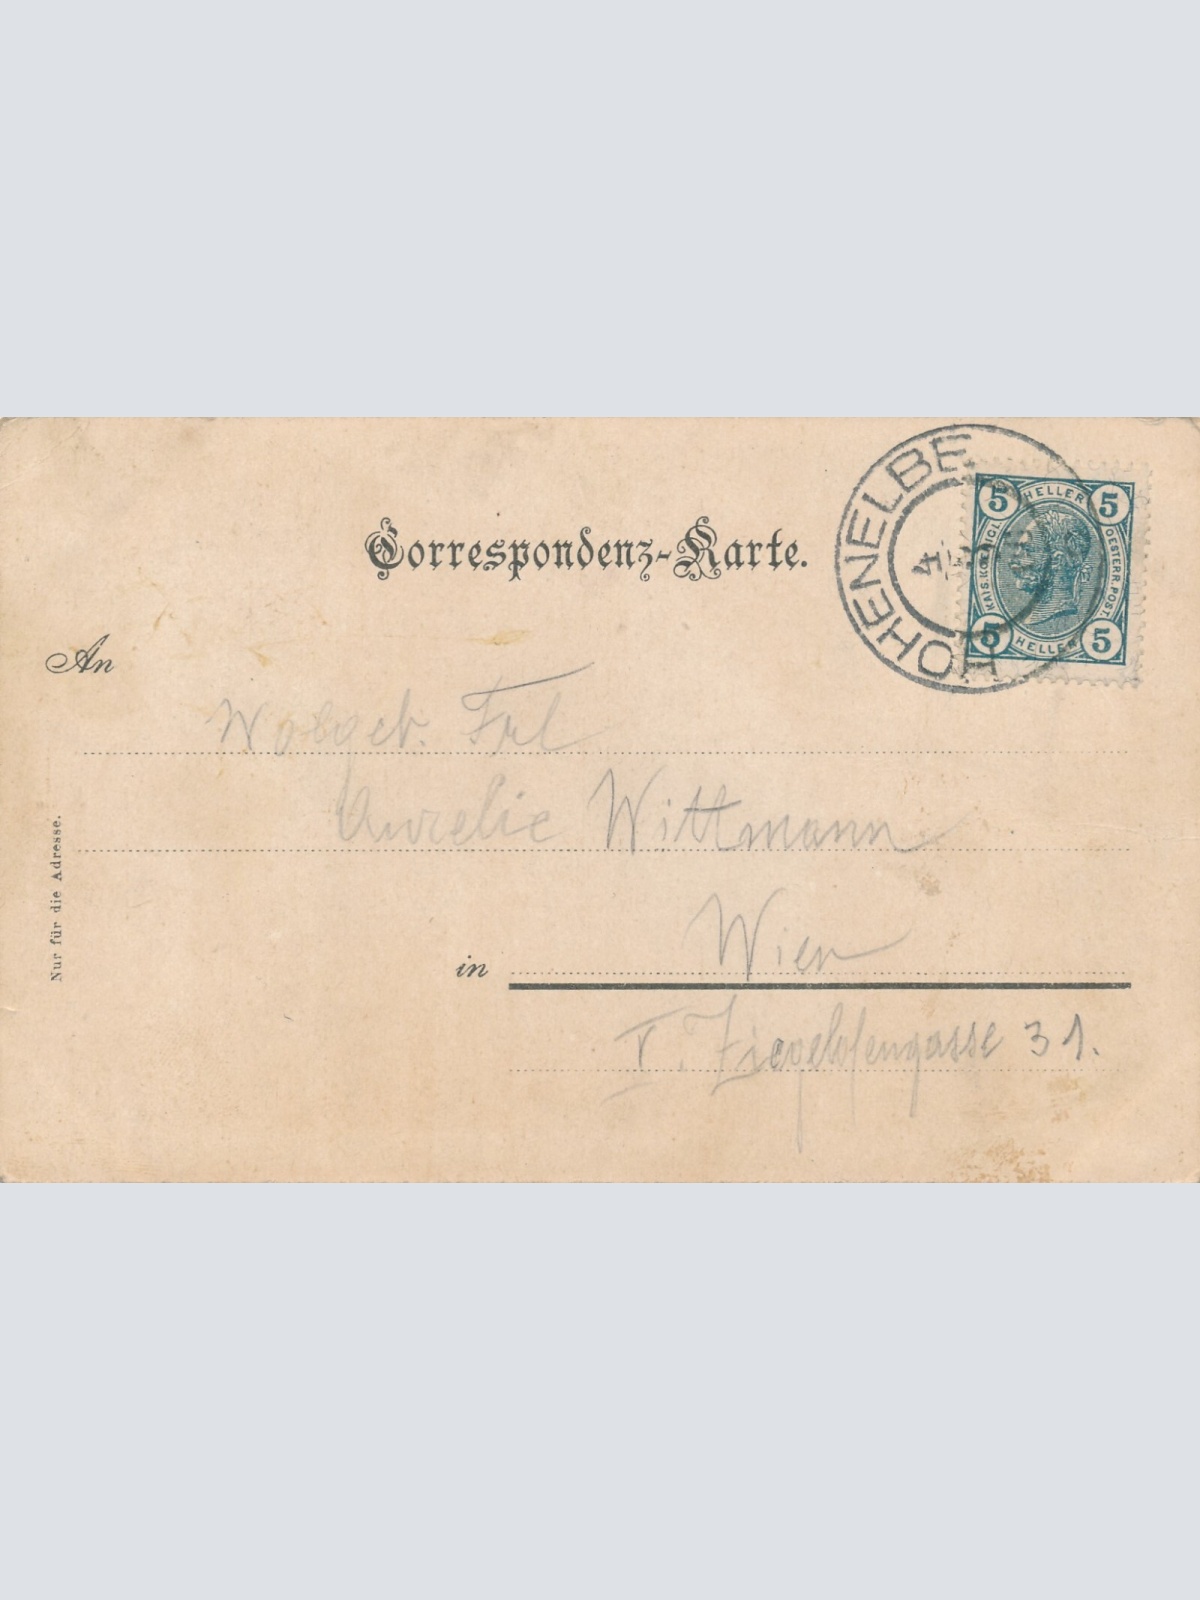 Correspondenz-Karte.
HOHENELBE
4
5 HELLER 5
KAIS. KÖNIGL.
OESTERR. POST.
5 HELLER 5
An
Wolgeb. Frl
Aurelie Wittmann
in Wien
V. Ziegelofengasse 31.
Nur für die Adresse.